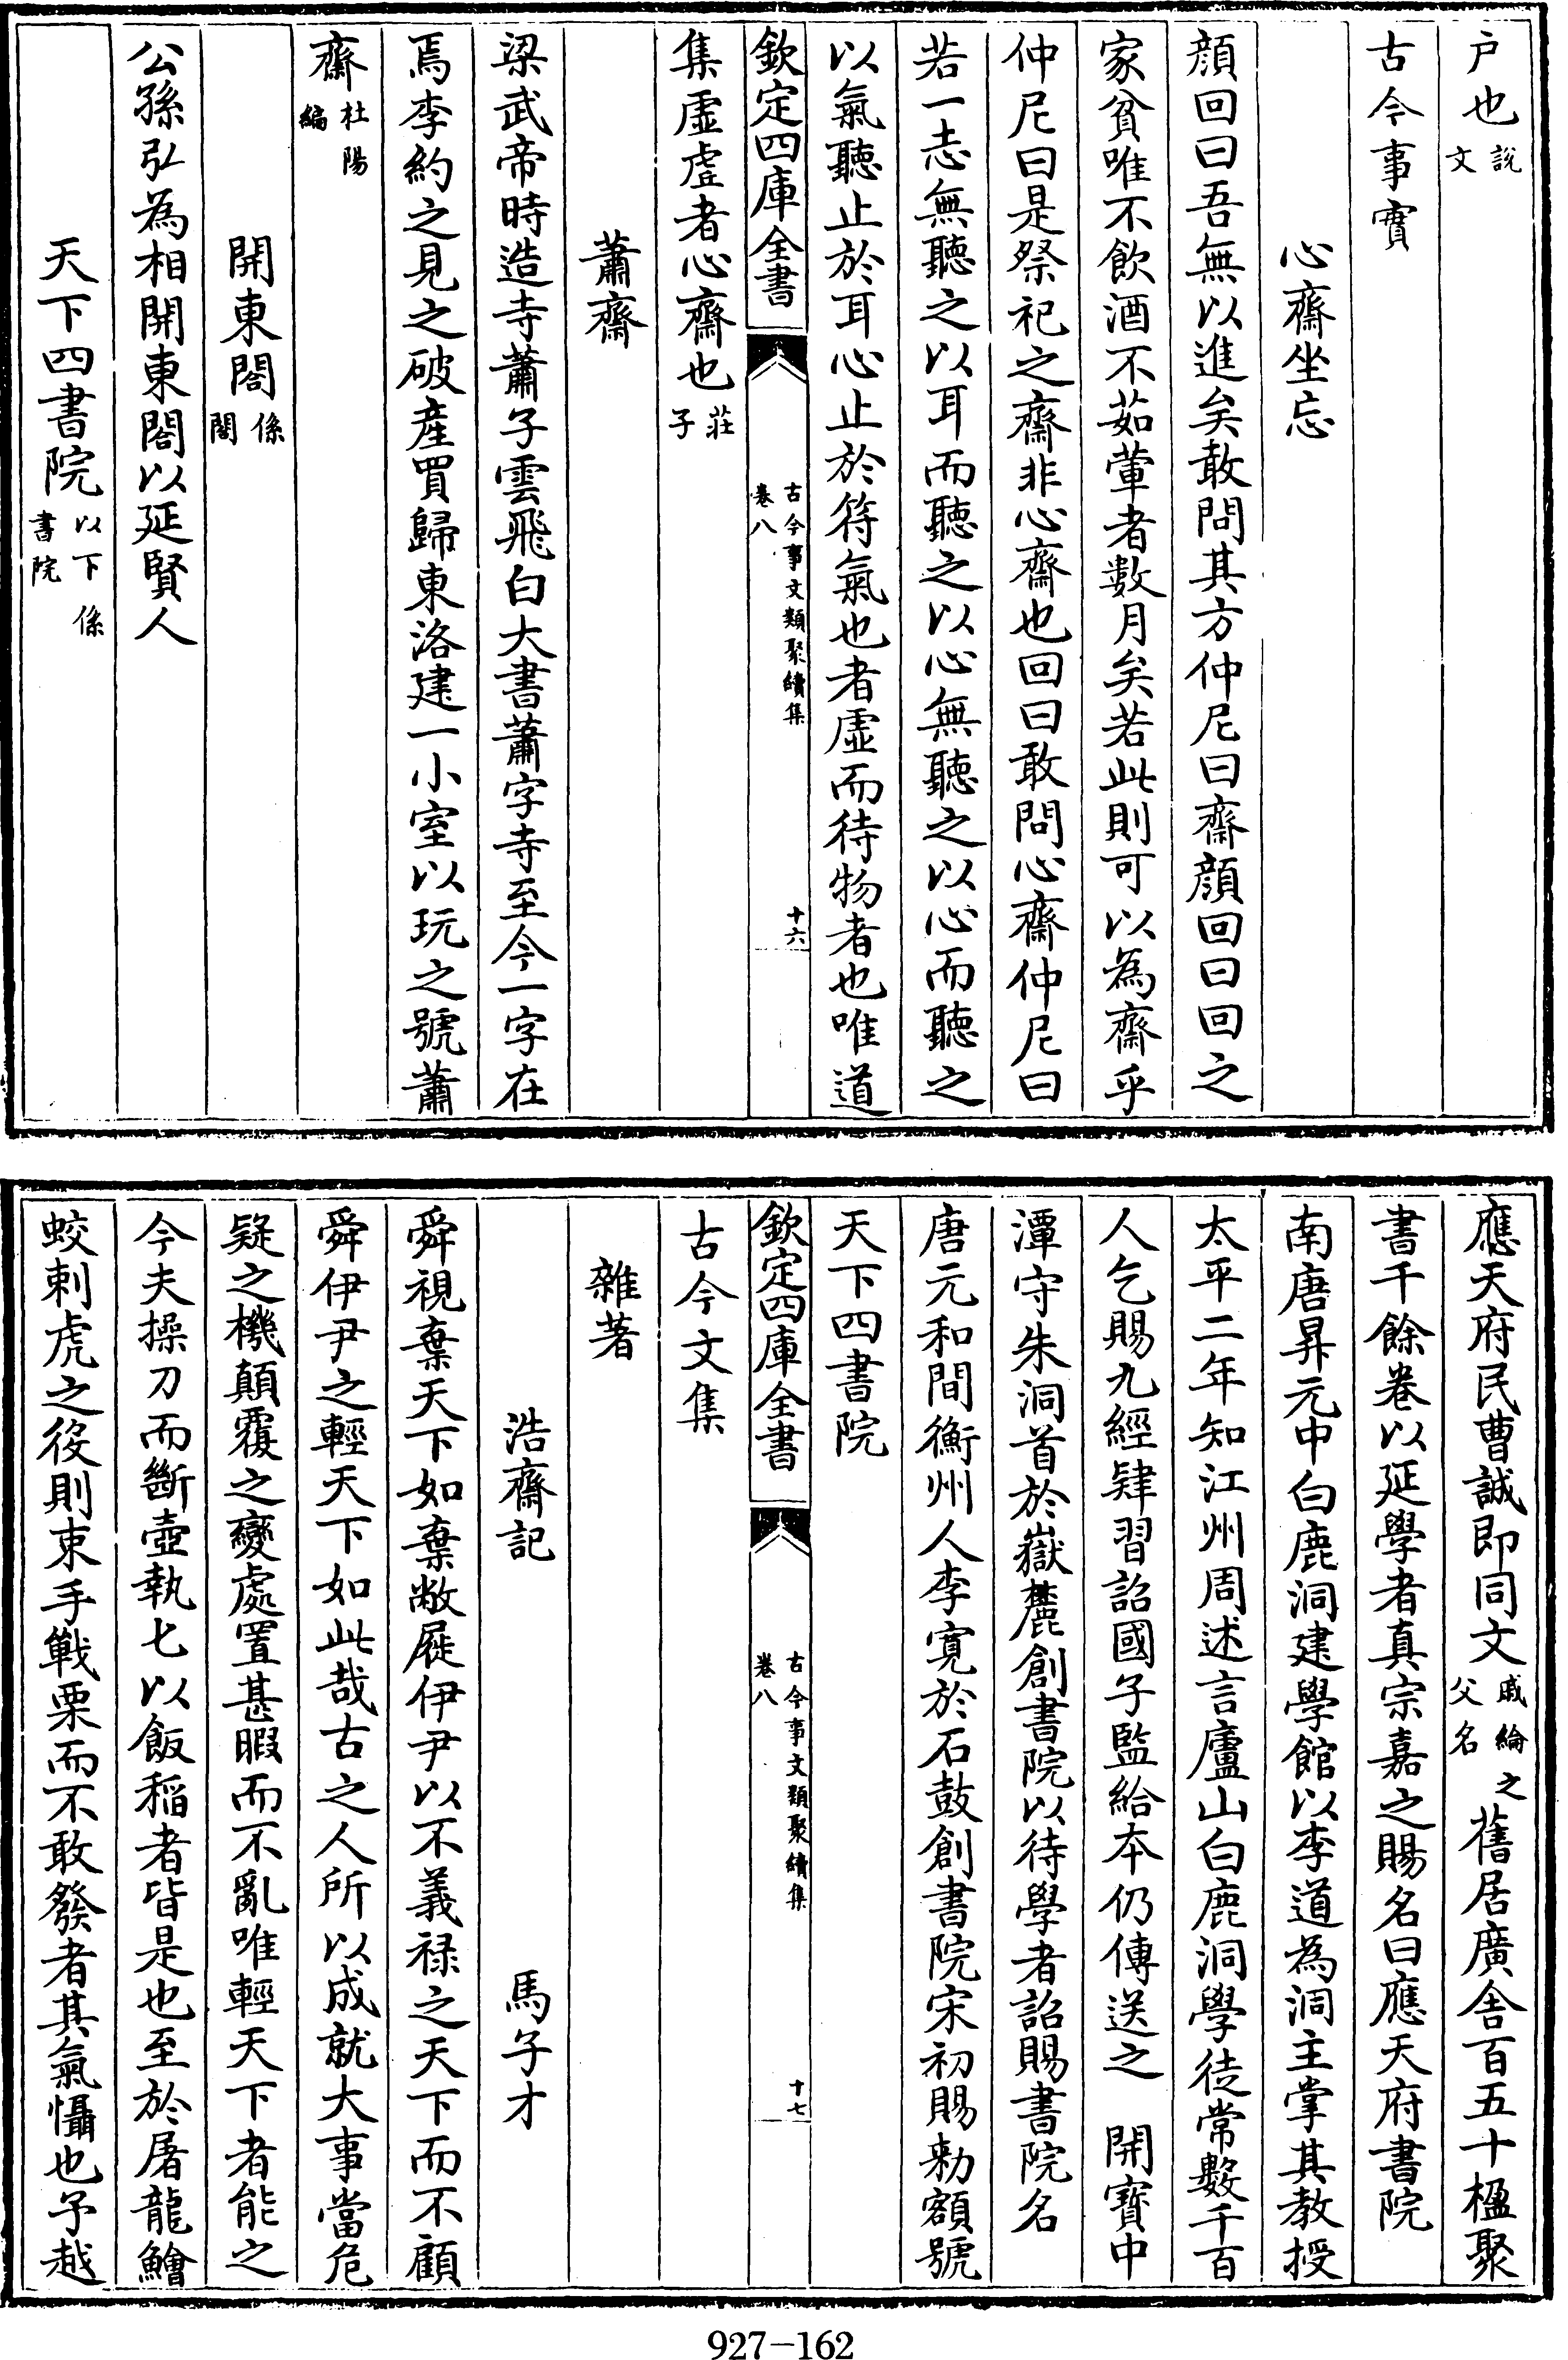 户也說文
古今事實
心齋坐忘
顔回曰吾無以進矣敢問其方仲尼曰齋顔回曰回之
家貧唯不飲酒不茹葷者數月矣若此則可以為齋乎
仲尼曰是祭祀之齋非心齋也回曰敢問心齋仲尼曰
若一志無聽之以耳而聽之以心無聽之以心而聽之
以氣聽止於耳心止於符氣也者虛而待物者也唯道
欽定四庫全書 古今事文類聚續集卷八 十六
集虛虛者心齋也莊子
蕭齋
梁武帝時造寺蕭子雲飛白大書蕭字寺至今一字在
焉李約之見之破產買歸東洛建一小室以玩之號蕭
齋杜陽編
開東閤係閤
公孫弘為相開東閤以延賢人
天下四書院以下係書院
應天府民曹誠即同文戚綸之父名舊居廣舍百五十楹聚
書千餘卷以延學者真宗嘉之賜名曰應天府書院
南唐昇元中白鹿洞建學館以李道為洞主掌其教授
太平二年知江州周述言廬山白鹿洞學徒常數千百
人乞賜九經肄習詔國子監給本仍傳送之 開寶中
潭守朱洞首於嶽麓創書院以待學者詔賜書院名
唐元和間衡州人李寬於石鼓創書院宋初賜勅額號
天下四書院
欽定四庫全書 古今事文類聚續集卷八 十七
古今文集
雜著
浩齋記 馬子才
舜視棄天下如棄敝屣伊尹以不義祿之天下而不顧
舜伊尹之輕天下如此哉古之人所以成就大事當危
疑之機顛覆之變處置甚暇而不亂唯輕天下者能之
今夫操刀而斷壺執匕以飯稻者皆是也至於屠龍鱠
蛟刺虎之役則束手戰栗而不敢發者其氣懾也予越
927-162